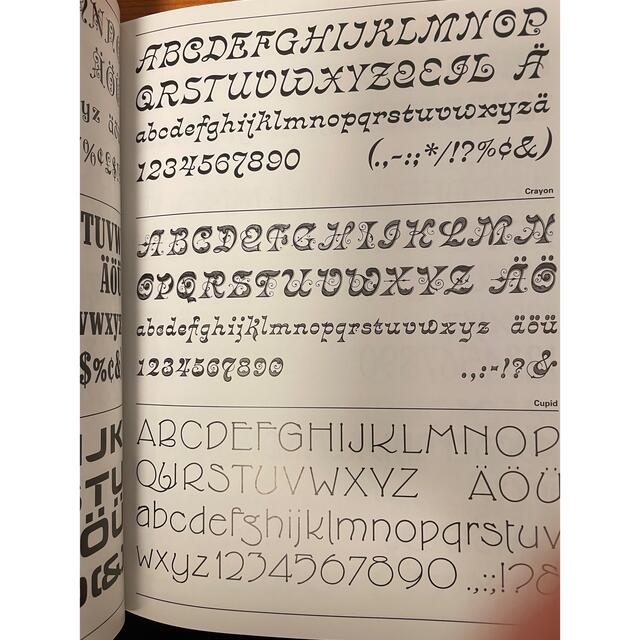 ABCDEFGHIJKLMNOP
QRSTUVWXYZQEJL Ä
abcdefghijklmnopqrstuvwxyzä
1234567890 (.,-:;*/!?%¢&)
Crayon
ABCDEFGHIJKLMN
OPQRSTUVWXYZ ÄÖ
abcdefghijklmnopqrstuvwxyz äöü
1234567890 .,:-!?&
Cupid
ABCDEFGHIJKLMNOP
QURSTUVWXYZ ÄÖÜ
abcdefghijklmnopqrstuv
wxyz1234567890 .,:;!?&
TUVW
ÄÖÜ
vwxyz
$%¢&
IJK
STU
ÖÜ